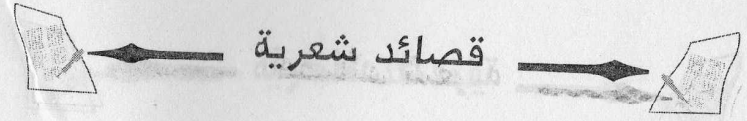 قصائد شعرية